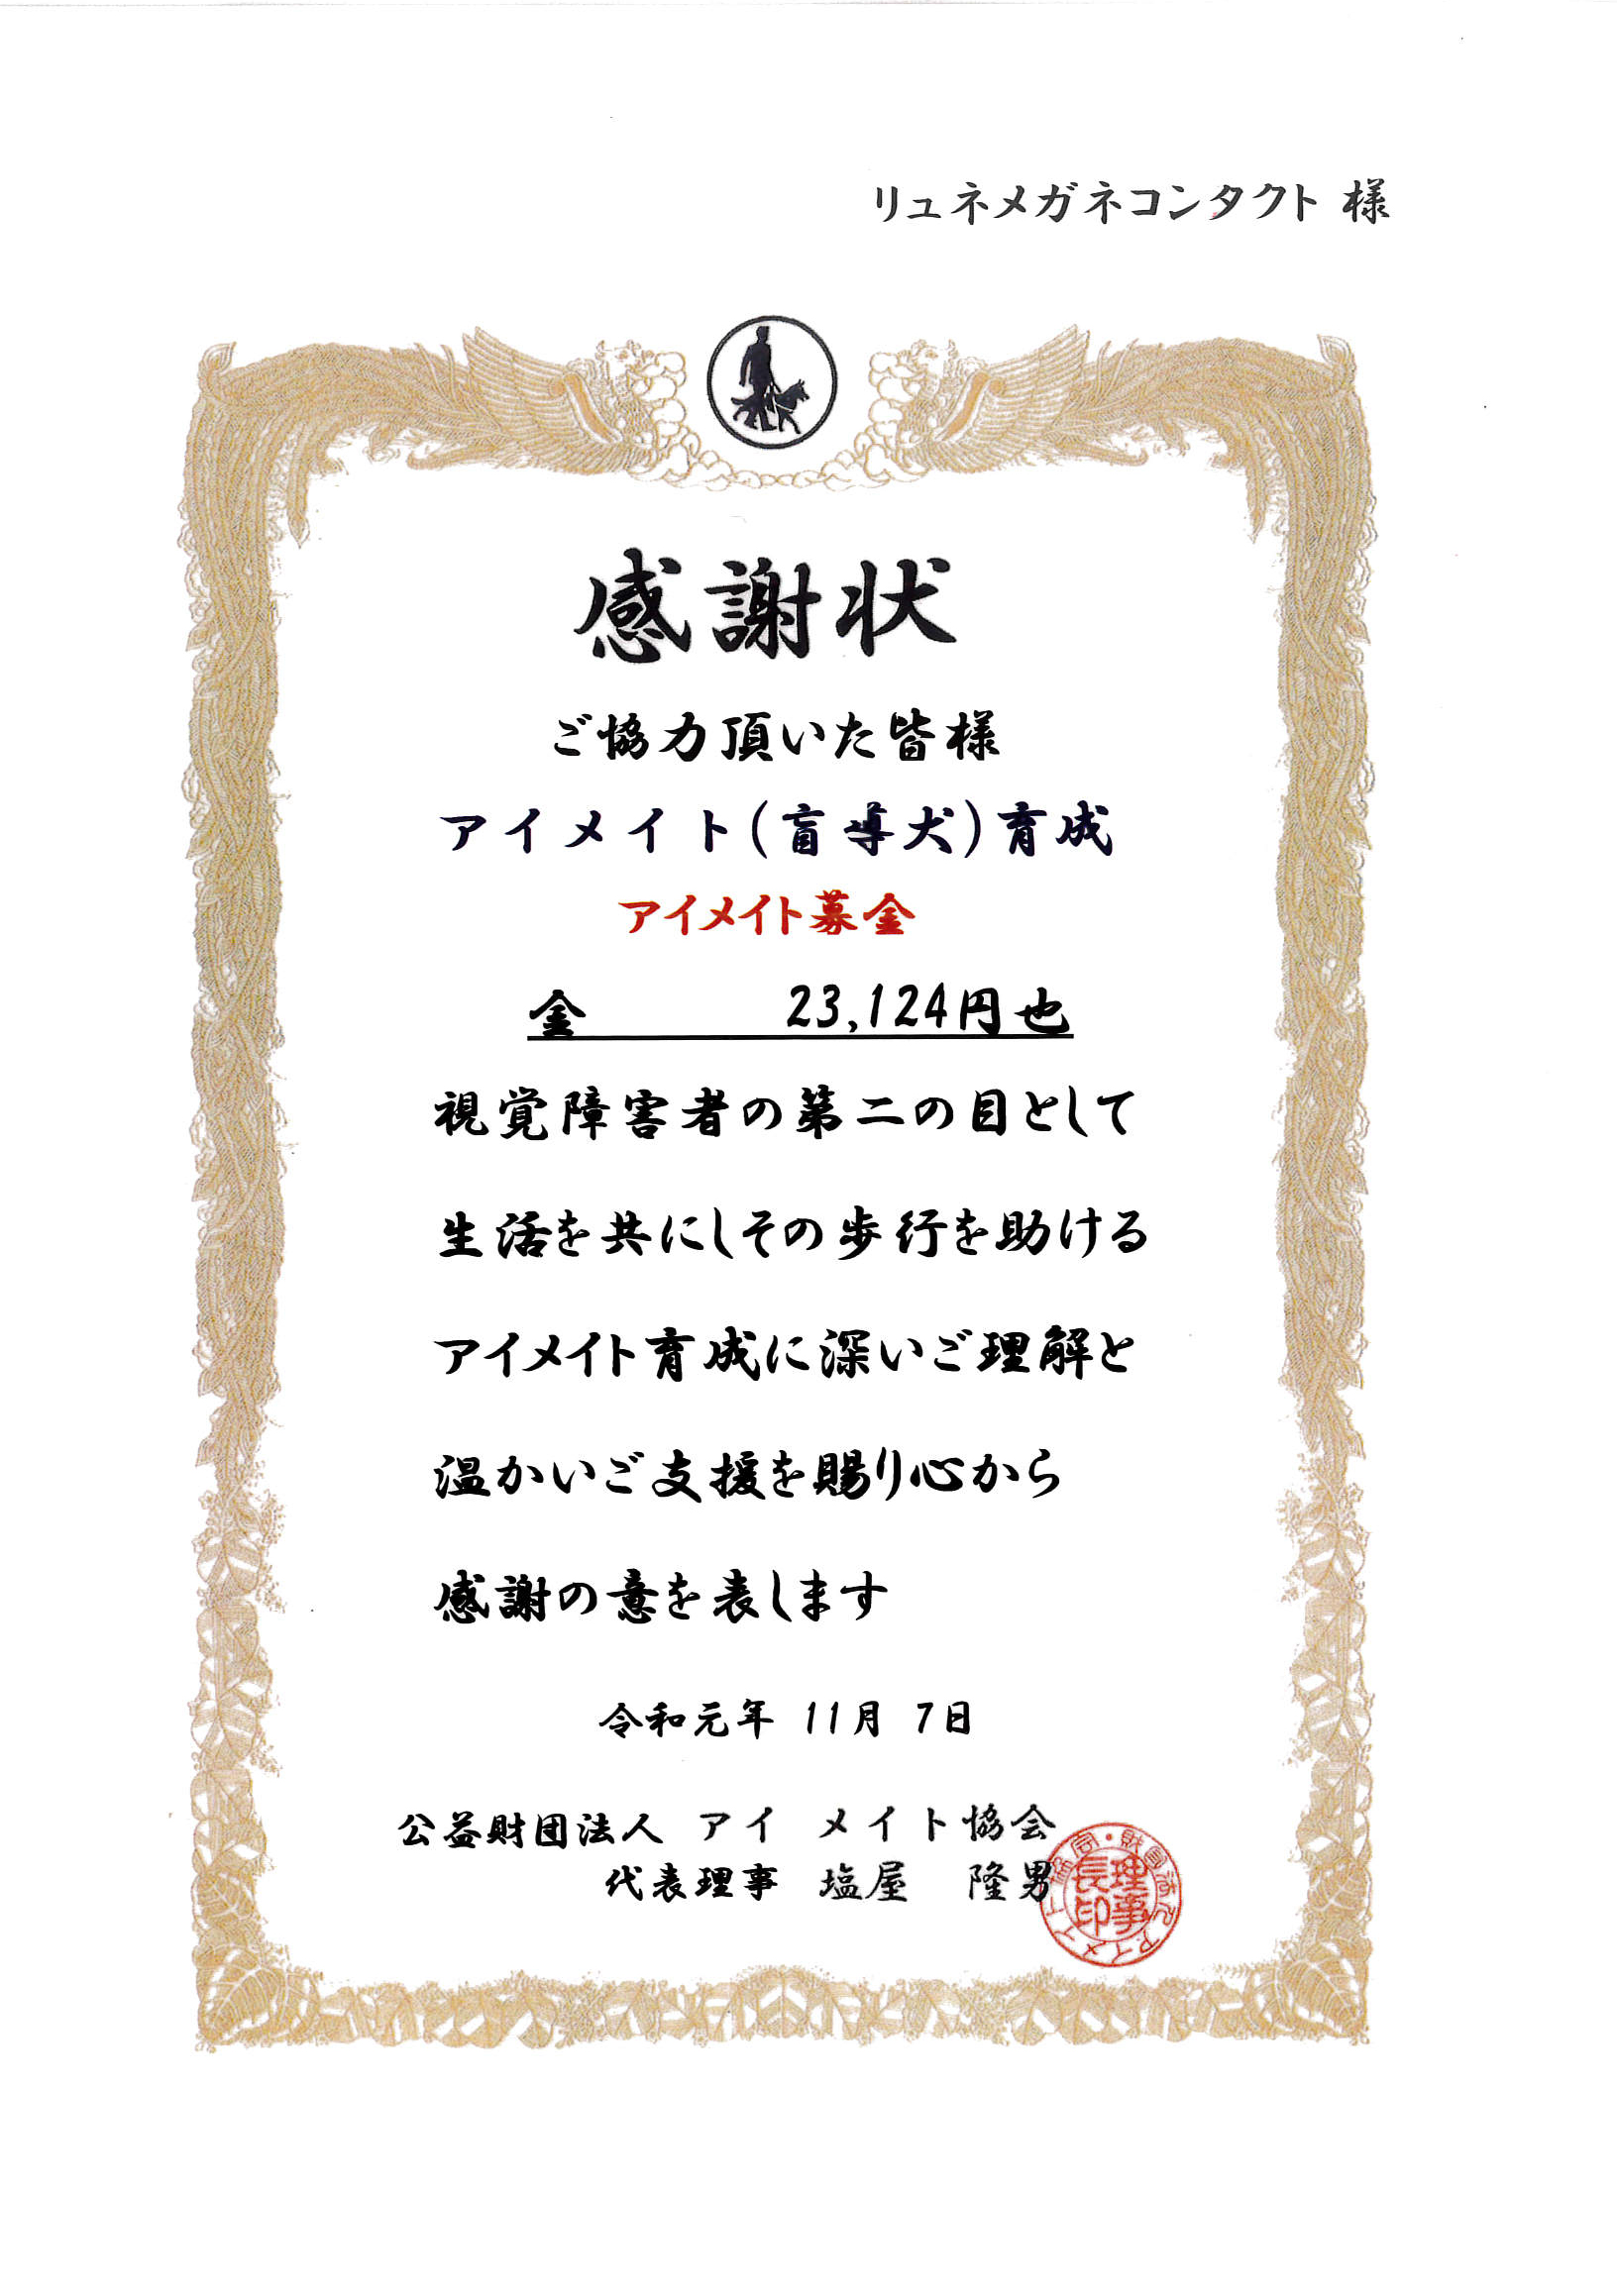 リュネメガネコンタクト 様
感謝状
ご協力頂いた皆様
アイメイト(盲導犬)育成
アイメイト募金
金 23,124円也
視覚障害者の第二の目として
生活を共にしその歩行を助ける
アイメイト育成に深いご理解と
温かいご支援を賜り心から
感謝の意を表します
令和元年 11月 7日
公益財団法人 アイ メイト協会
代表理事 塩屋 隆男
理事長印